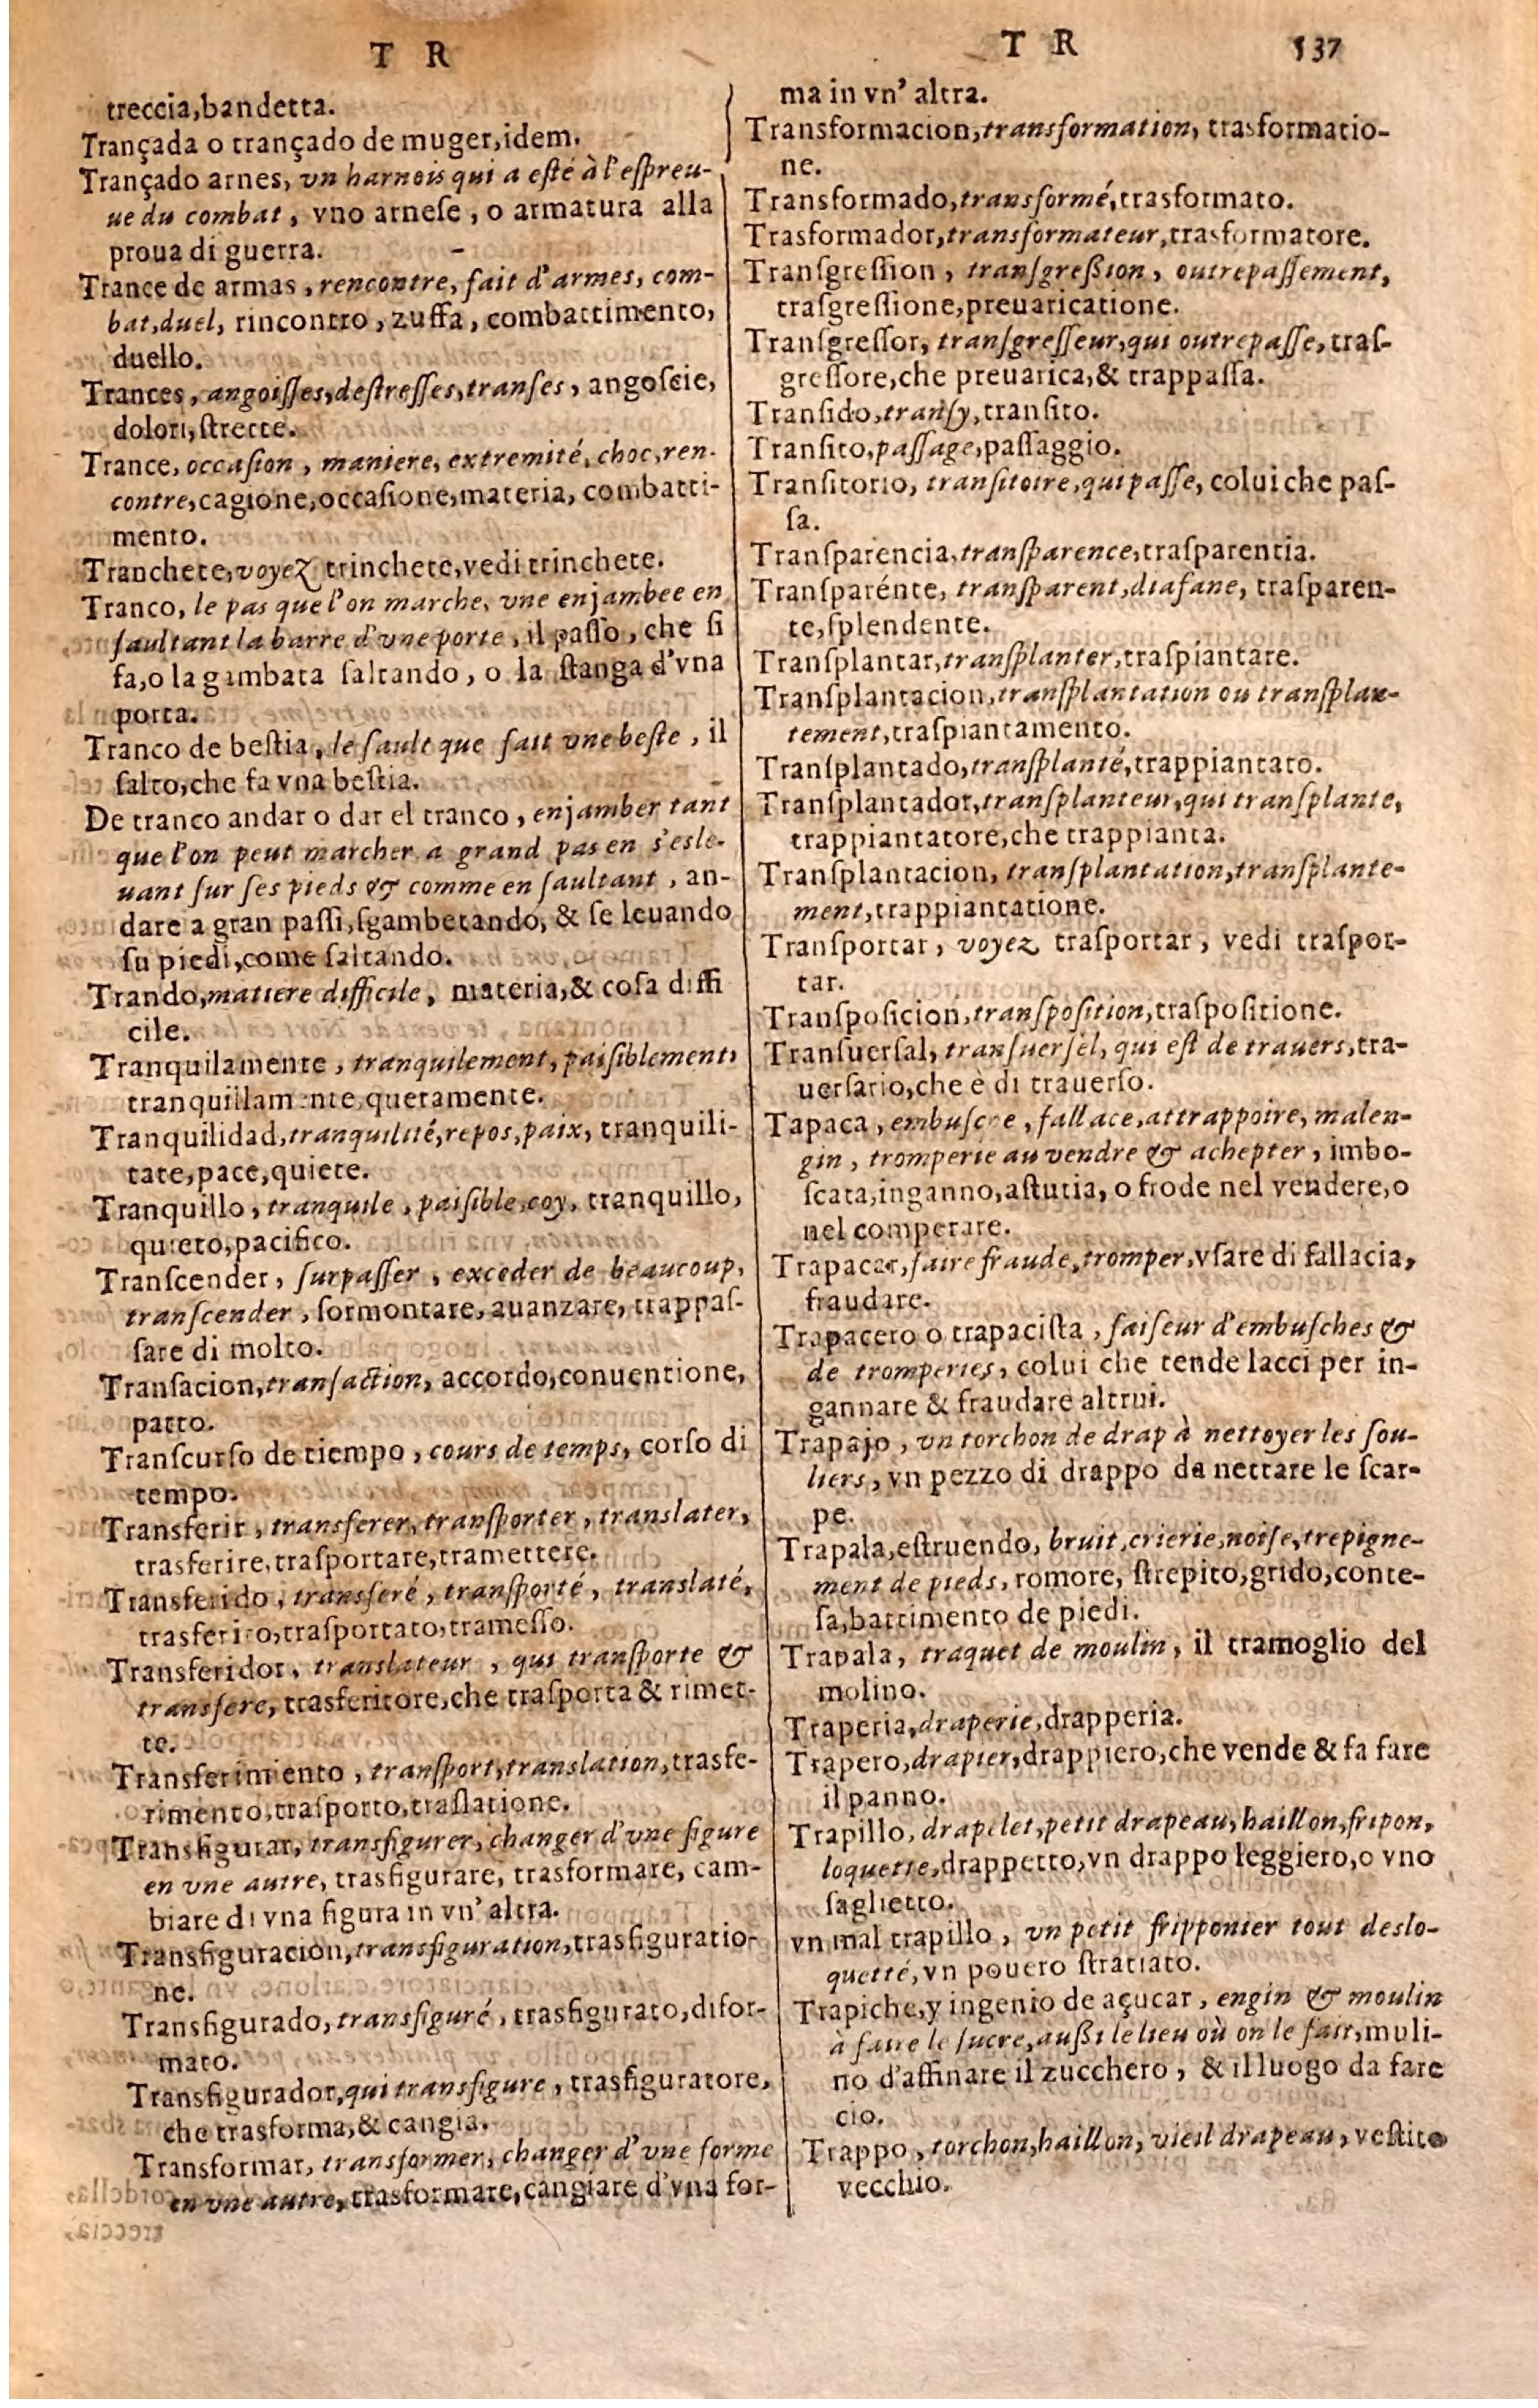 T R
treccia,bandetta.
Trançada o trançado de muger,idem.
Trançado arnes, vn harnois qui a esté à l'espreu-
ue du combat, vno arneſe, o armatura alla
proua di guerra.
Trance de armas, rencontre, fait d'armes, com-
bat,duel, rincontro, zuffa, combattimento,
duello.
Trances, angoiſſes,deſtreſſes,tranſes, angoſcie,
dolori,ſtrette.
Trance, occaſion, maniere, extremité, choc,ren-
contre,cagione,occaſione,materia, combatti-
mento.
Tranchete,voyez trinchete,vedi trinchete.
Tranco, le pas que l'on marche, vne enjambee en
ſaultant la barre d'vne porte, il paſſo, che ſi
fa,o la gambata ſaltando, o la ſtanga d'vna
porta.
Tranco de beſtia, le ſault que fait vne beſte, il
ſalto,che fa vna beſtia.
De tranco andar o dar el tranco, enjamber tant
que l'on peut marcher a grand pas en s'esle-
uant ſur ſes pieds & comme en ſaultant, an-
dare a gran paſſi,sgambetando, & ſe leuando
ſu piedi,come ſaltando.
Trando,matiere difficile, materia,& coſa diffi
cile.
Tranquilamente, tranquilement, paiſiblement,
tranquillamente,quetamente.
Tranquilidad,tranquilité,repos,paix, tranquili-
tate,pace,quiete.
Tranquillo, tranquile, paiſible,coy, tranquillo,
quieto,pacifico.
Tranſcender, ſurpaſſer, exceder de beaucoup,
tranſcender, ſormontare, auanzare, trappaſ-
ſare di molto.
Tranſacion,tranſaction, accordo,conuentione,
patto.
Tranſcurſo de tiempo, cours de temps, corſo di
tempo.
Transferir, transferer, tranſporter, translater,
trasferire,traſportare,tramettere.
Transferido, transferé, tranſporté, translaté,
trasferito,traſportato,trameſſo.
Transferidor, translateur, qui tranſporte &
transfere, trasferitore,che traſporta & rimet-
te.
Transferimiento, tranſport,translation,trasfe-
rimento,traſporto,traſlatione.
Transfigurar, transfigurer, changer d'vne figure
en vne autre, trasfigurare, trasformare, cam-
biare di vna figura in vn' altra.
Transfiguracion,transfiguration,trasfiguratio-
ne.
Transfigurado,transfiguré, trasfigurato,disfor-
mato.
Transfigurador,qui transfigure, trasfiguratore,
che trasforma,& cangia.
Transformar, transformer, changer d'vne forme
en vne autre, trasformare,cangiare d'vna for-
T R 537
ma in vn' altra.
Transformacion,transformation, trasformatio-
ne.
Transformado,transformé,trasformato.
Trasformador,transformateur,trasformatore.
Tranſgreſſion, tranſgreßion, outrepaſſement,
traſgreſſione,preuaricatione.
Tranſgreſſor, tranſgreſſeur,qui outrepaſſe, traſ-
greſſore,che preuarica,& trappaſſa.
Tranſido,tranſy,tranſito.
Tranſito,paſſage,paſſaggio.
Tranſitorio, tranſitoire,qui paſſe, colui che paſ-
ſa.
Tranſparencia,tranſparence,traſparentia.
Tranſparénte, tranſparent,diafane, traſparen-
te,ſplendente.
Tranſplantar,tranſplanter,traspiantare.
Tranſplantacion,tranſplantation ou tranſplan-
tement,traspiantamento.
Tranſplantado,tranſplanté,trappiantato.
Tranſplantador,tranſplanteur,qui tranſplante,
trappiantatore,che trappianta.
Tranſplantacion, tranſplantation,tranſplante-
ment,trappiantatione.
Tranſportar, voyez traſportar, vedi traſpor-
tar.
Tranſposicion,tranſpoſition,traſpoſitione.
Tranſuerſal, tranſuerſel, qui eſt de trauers,tra-
uerſario,che è di trauerſo.
Tapaca, embuſcee, fallace,attrappoire, malen-
gin, tromperie au vendre & achepter, imbo-
ſcata,inganno,aſtutia, o frode nel vendere,o
nel comperare.
Trapacar,faire fraude,tromper,vſare di fallacia,
fraudare.
Trapacero o trapaciſta, faiſeur d'embuſches &
de tromperies, colui che tende lacci per in-
gannare & fraudare altrui.
Trapajo, vn torchon de drap à nettoyer les ſou-
liers, vn pezzo di drappo da nettare le ſcar-
pe.
Trapala,eſtruendo, bruit,crierie,noiſe,trepigne-
ment de pieds, romore, ſtrepito,grido,conte-
ſa,battimento de piedi.
Trapala, traquet de moulin, il tramoglio del
molino.
Traperia,draperie,drapperia.
Trapero,drapier,drappiero,che vende & fa fare
il panno.
Trapillo, drapelet,petit drapeau,haillon,fripon,
loquette,drappetto,vn drappo leggiero,o vno
ſaglietto.
vn mal trapillo, vn petit fripponier tout deslo-
quetté,vn pouero ſtratiato.
Trapiche,y ingenio de açucar, engin & moulin
à faire le ſucre,außi le lieu où on le fait,muli-
no d'affinare il zucchero, & il luogo da fare
cio.
Trappo, torchon,haillon, vieil drapeau, veſtito
vecchio.